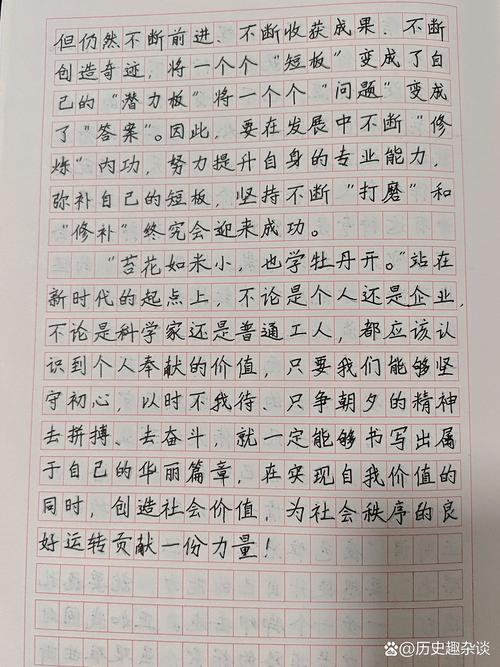 但仍然不断前进、不断收获成果、不断
创造奇迹，将一个个“短板”变成了自
己的“潜力板”将一个个“问题”变成
了“答案”。因此，要在发展中不断“修
炼”内功，努力提升自身的专业能力，
弥补自己的短板，坚持不断“打磨”和
“修补”终究会迎来成功。
“苔花如米小，也学牡丹开。”站在
新时代的起点上，不论是个人还是企业，
不论是科学家还是普通工人，都应该认
识到个人奉献的价值，只要我们能够坚
守初心，以时不我待、只争朝夕的精神
去拼搏、去奋斗，就一定能够书写出属
于自己的华丽篇章，在实现自我价值的
同时，创造社会价值，为社会秩序的良
好运转贡献一份力量！
@历史趣杂谈